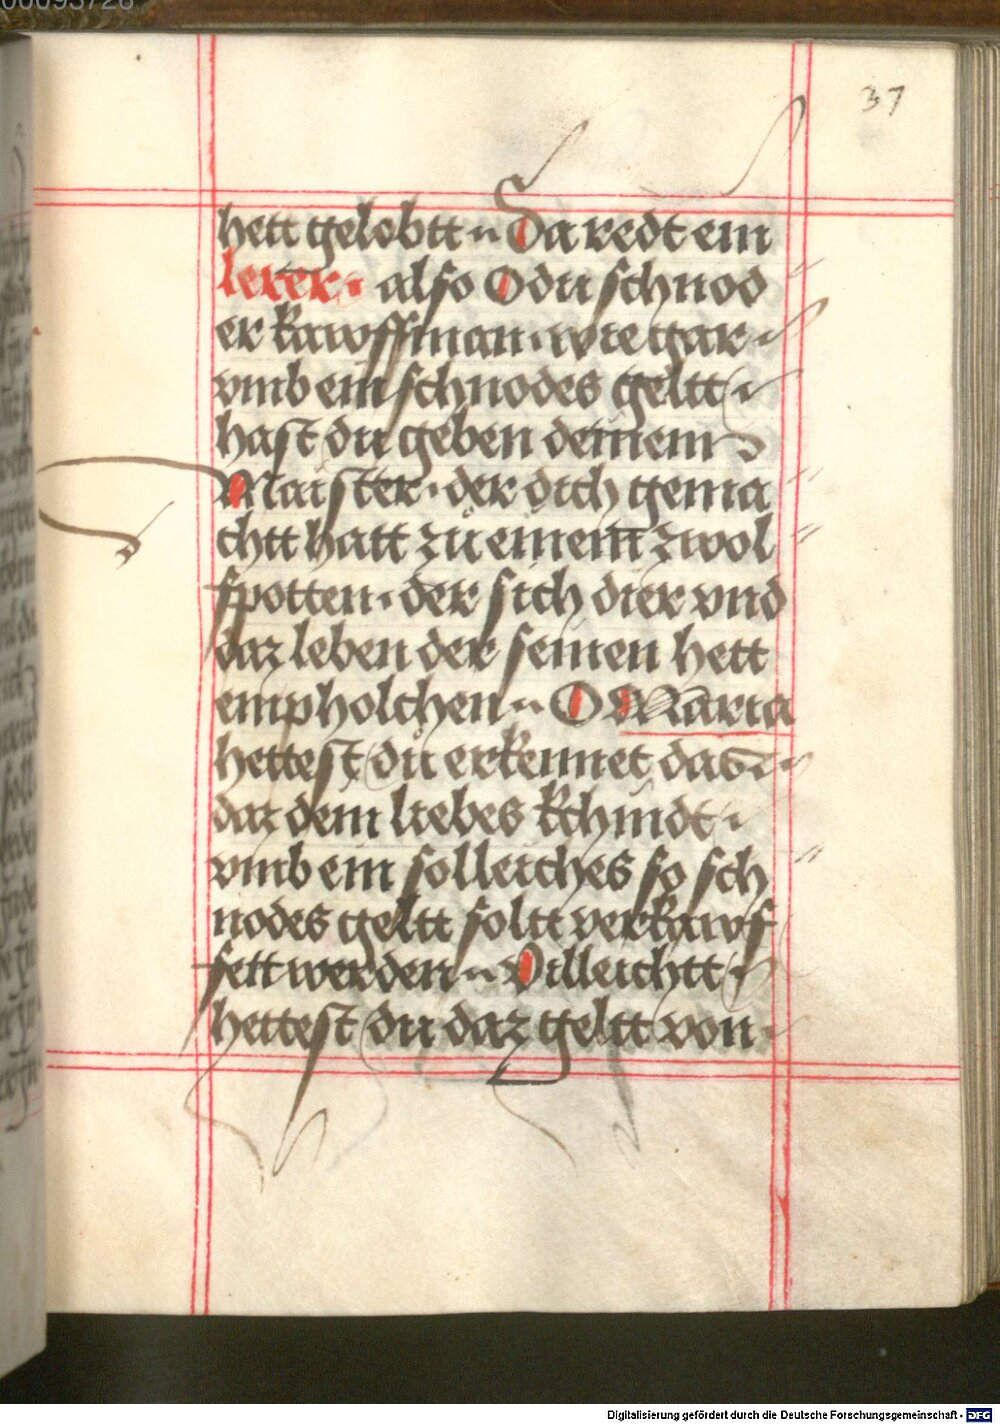 00093726
37
hett gelobtt · Da redt ein
lerer · also O du schnod
er kawffman · wie gar
vmb ein schnodes geltt
hast du geben deinem
Maister · der dich gema
chtt hatt zu einem zwol
fpotten · der sich dier vnd
daz leben der seinen hett
empholchen · O Maria
hettest du erkennet das
daz dein liebes kchindt
vmb ein solleiches so sch
nodes geltt soltt verkawf
fett werden · Villeichtt
hettest du daz geltt von
Digitalisierung gefördert durch die Deutsche Forschungsgemeinschaft - DFG